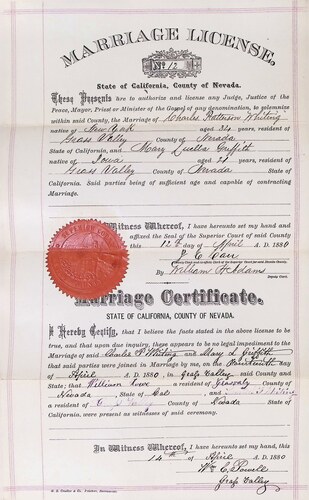 MARRIAGE LICENSE.
No. 12
State of California, County of Nevada.
These Presents are to authorize and license any Judge, Justice of the
Peace, Mayor, Priest or Minister of the Gospel of any denomination, to solemnize
within said County, the Marriage of Charles Patterson Whiting
native of New York aged 34 years, resident of
Grass Valley County of Nevada
State of California, and Mary Luella Griffith
native of Iowa aged 21 years, resident of
Grass Valley County of Nevada State of
California. Said parties being of sufficient age and capable of contracting
Marriage.
In Witness Whereof, I have hereunto set my hand and
affixed the Seal of the Superior Court of said County
this 12th day of April A. D. 1880
Carr
County Clerk and ex-officio Clerk of the Superior Court
By William F. Adams
Deputy Clerk.
Marriage Certificate.
STATE OF CALIFORNIA, COUNTY OF NEVADA.
I Hereby Certify, that I believe the facts stated in the above license to be
true, and that upon due inquiry, there appears to be no legal impediment to the
Marriage of said Charles P. Whiting and Mary L. Griffith
that said parties were joined in Marriage by me, on the
of April A. D. 1880, in Grass Valley, said County and
State; that William Lowe a resident of
Nevada, State of Cal and
County of Nevada State of
California, were present as witnesses of said ceremony.
In Witness Whereof, I have hereunto set my hand, this
14th of April A. D. 1880
Wm C. Powell
Grass Valley